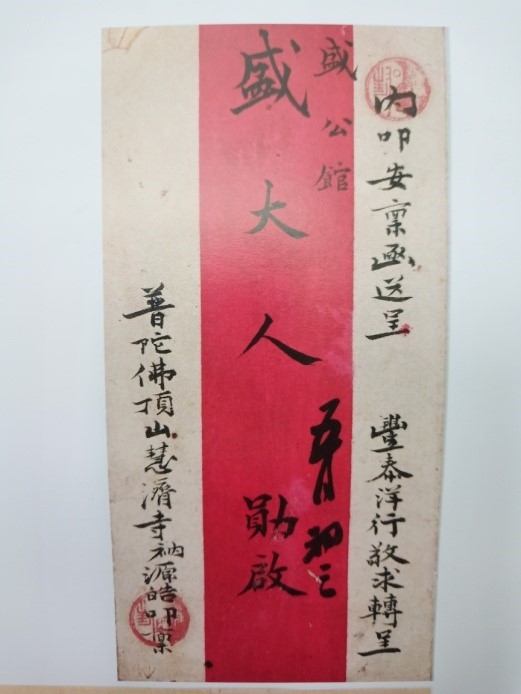 內叩安稟函送呈 豐泰洋行敬求轉呈
盛公館
盛大人 勛啟
五月初三
普陀佛頂山慧濟寺衲源皓叩稟